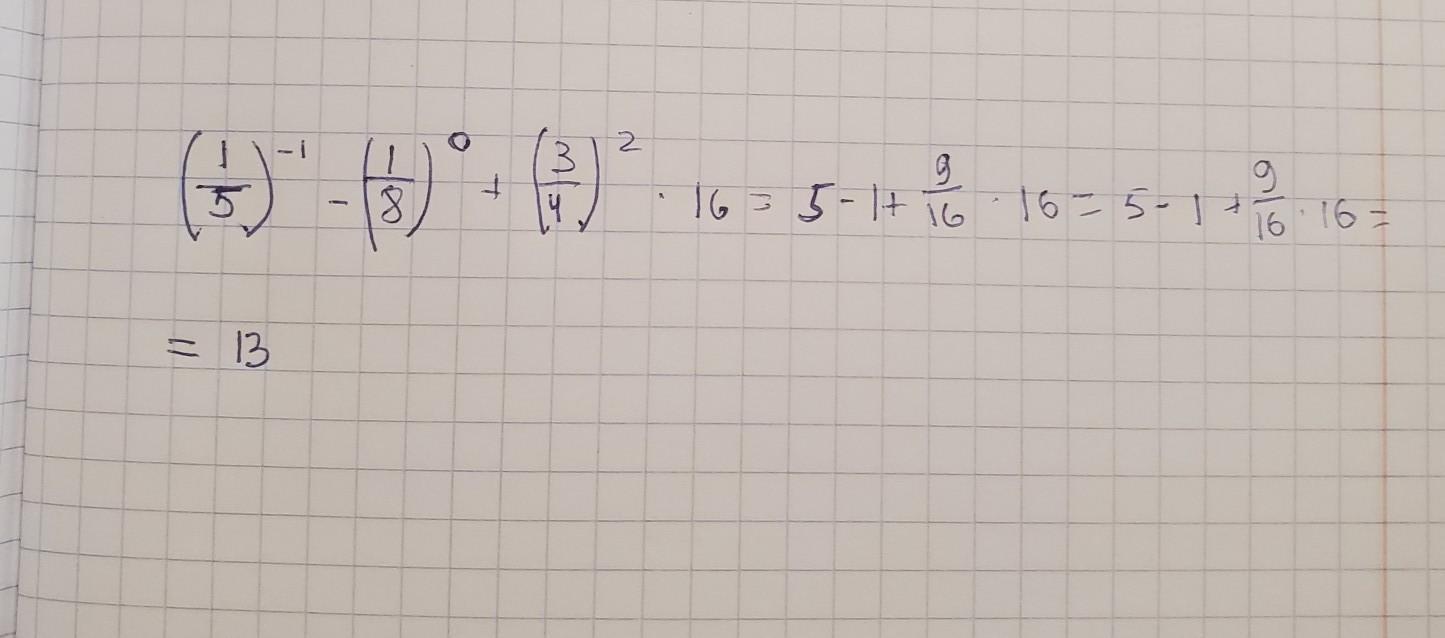 (1/5)^-1 - (1/8)^0 + (3/4)^2 · 16 = 5 - 1 + 9/16 · 16 = 5 - 1 + 9/16 · 16 =
= 13